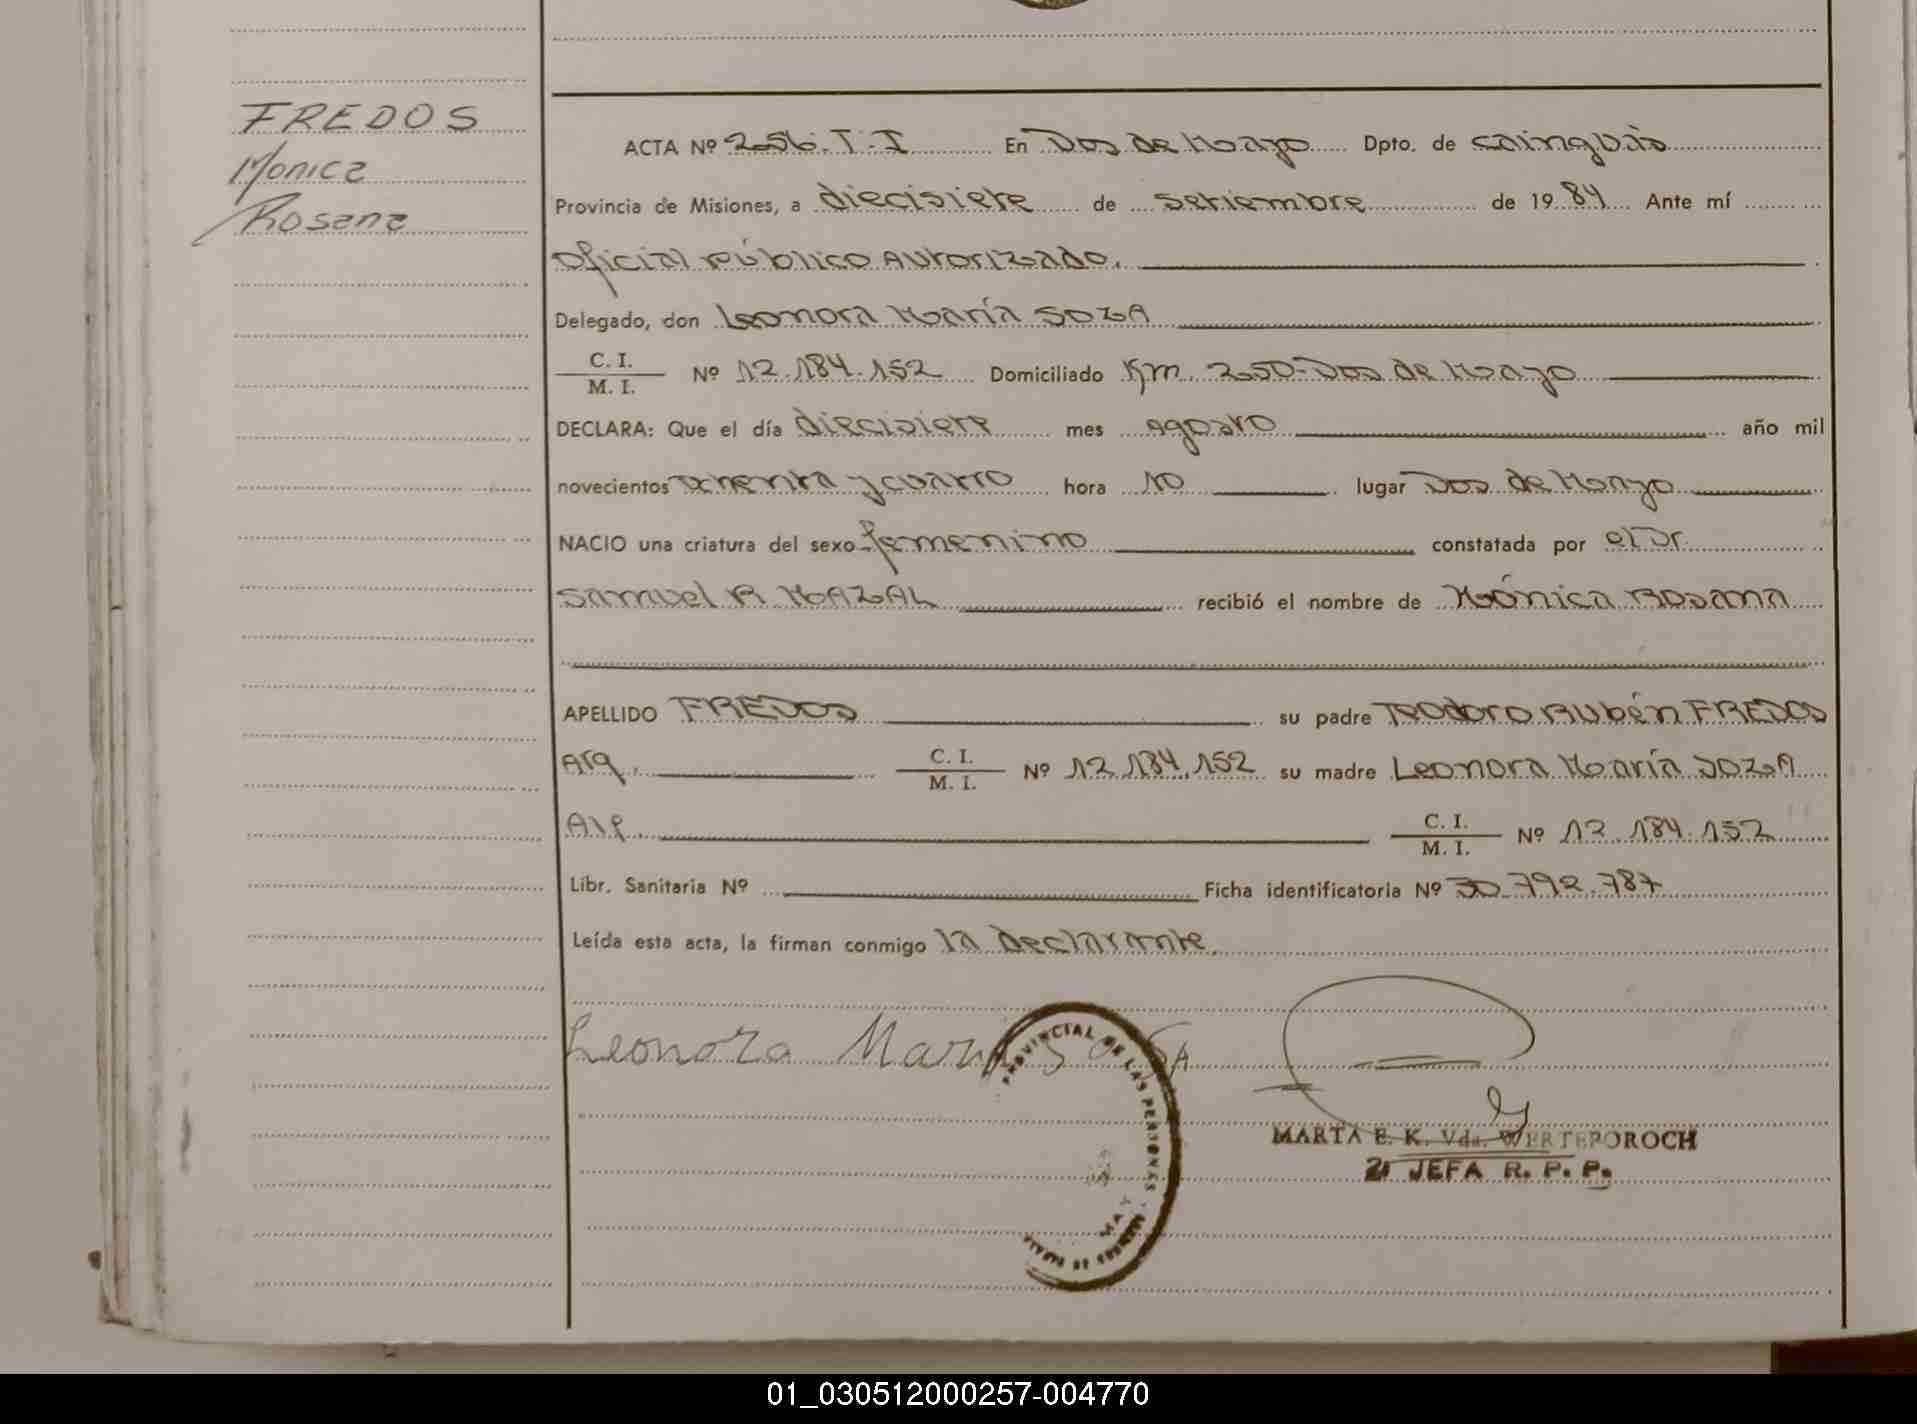 FREDOS
Monica
Rosana
ACTA Nº 256. T. I En Dos de Mayo Dpto. de Cainguás
Provincia de Misiones, a diecisiete de setiembre de 1984 Ante mí
Oficial Público Autorizado.
Delegado, don Leonora María SOZA
C. I.
M. I. Nº 12.184.152 Domiciliado Km. 250-Dos de Mayo
DECLARA: Que el día diecisiete mes Agosto año mil
novecientos ochenta y cuatro hora 10 lugar Dos de Mayo
NACIO una criatura del sexo femenino constatada por el Dr.
Samuel R. MAZAL recibió el nombre de Mónica Rosana
APELLIDO FREDOS su padre Teodoro Rubén FREDOS
Arg. C. I.
M. I. Nº 12.184.152 su madre Leonora María SOZA
C. I.
M. I. Nº 12.184.152
Libr. Sanitaria Nº Ficha identificatoria Nº 30.792.787
Leída esta acta, la firman conmigo la declarante.
Leonora Maria SOSA
PROVINCIAL DE LAS PERSONAS
MARTA E. K. Vda. WERTEPOROCH
JEFA R. P. P.
01_030512000257-004770